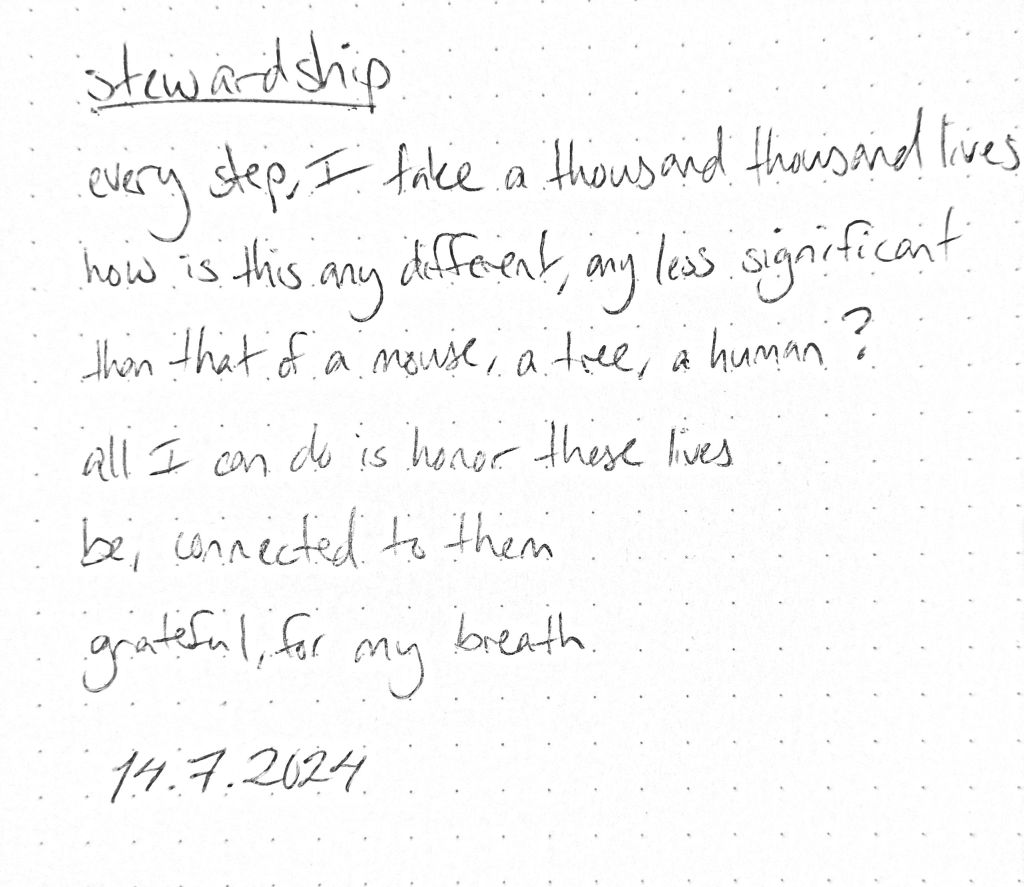 stewardship
every step, I take a thousand thousand lives
how is this any different, any less significant
than that of a mouse, a tree, a human?
all I can do is honor these lives
be, connected to them
grateful, for my breath
14.7.2024